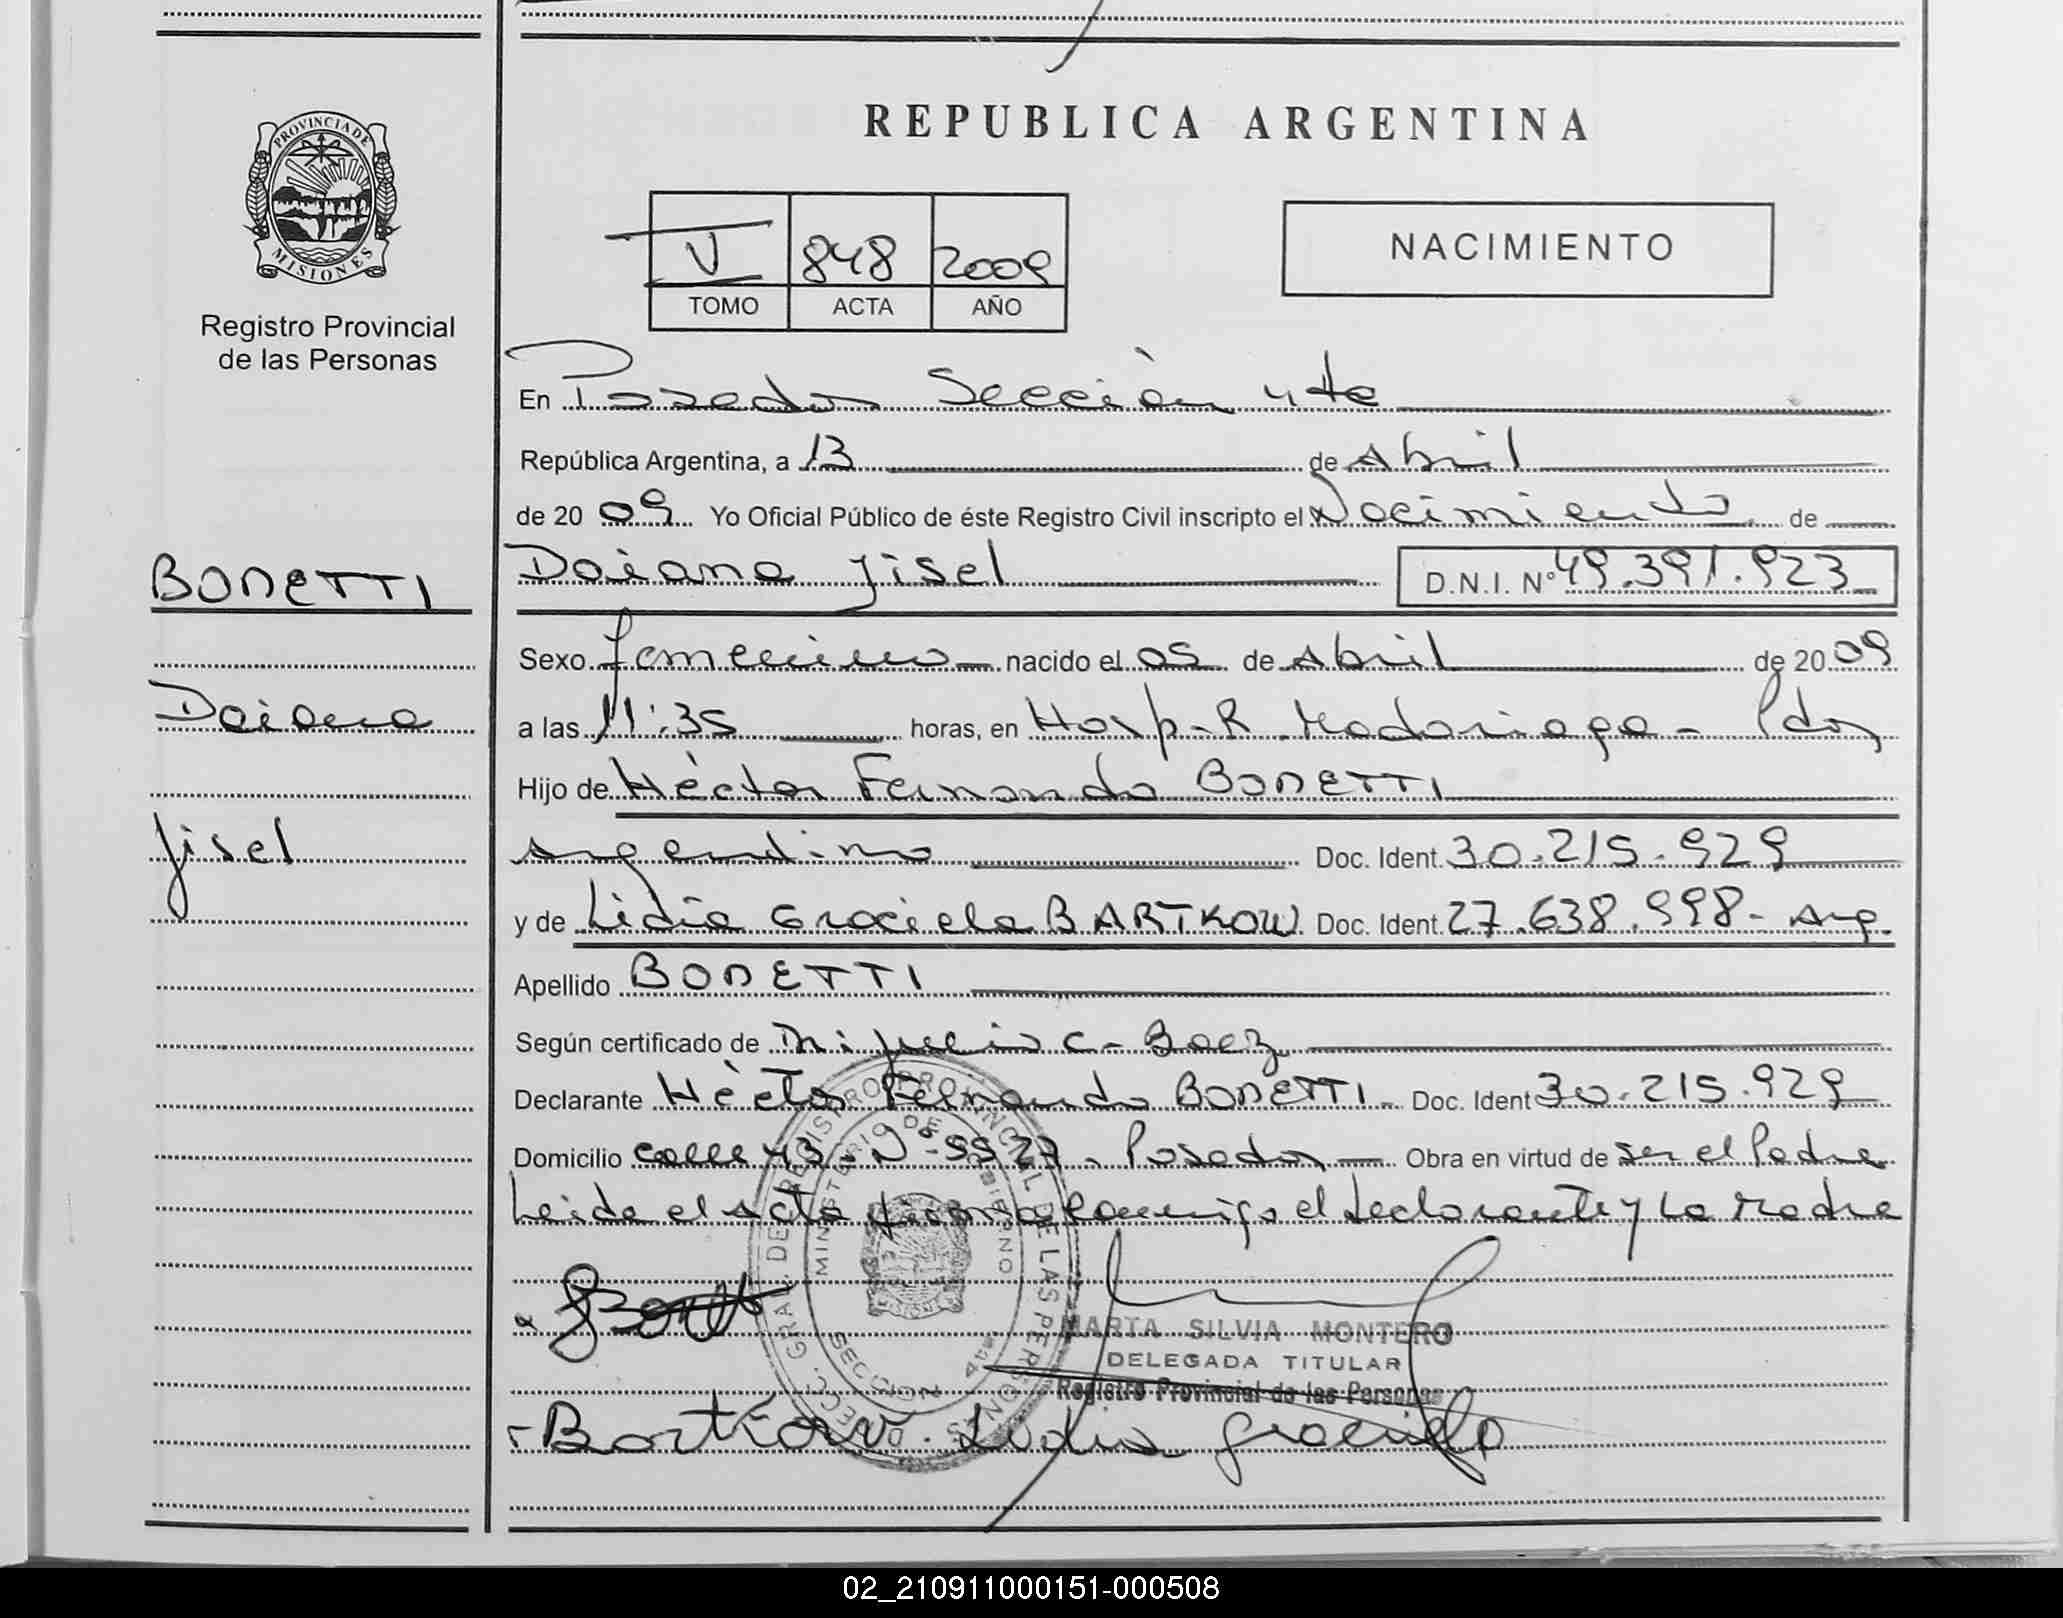 REPUBLICA ARGENTINA
PROVINCIA DE
MISIONES
Registro Provincial
de las Personas
V 848 2009
TOMO ACTA AÑO
NACIMIENTO
En Posadas Sección 4ta
República Argentina, a 13 de Abril
de 20 09 Yo Oficial Público de éste Registro Civil inscripto el Nacimiento de
BONETTI
Daiana Jisel D.N.I. Nº 49.391.923
Sexo femenino nacido el 05 de Abril de 20 09
Daiana
a las 11:35 horas, en Hosp. R. Madariaga - Pdas
Hijo de Héctor Fernando BONETTI
Jisel
Argentino Doc. Ident. 30.215.929
y de Lidia Graciela BARTKOW Doc. Ident. 27.638.998 - Arg.
Apellido BONETTI
Según certificado de C. Baez
Declarante Héctor Fernando BONETTI - Doc. Ident 30.215.929
Domicilio calle 43 - Nº - Posadas Obra en virtud de ser el Padre
Leida el Acta firman conmigo el declarante y La Madre
DIRECC. GRAL. DEL REGISTRO PROVINCIAL DE LAS PERSONAS
MINISTERIO DE GOBIERNO
MISIONES
SECCION 4ta
MARTA SILVIA MONTERO
DELEGADA TITULAR
Registro Provincial de las Personas
Bartkow Lidia Graciela
02_210911000151-000508